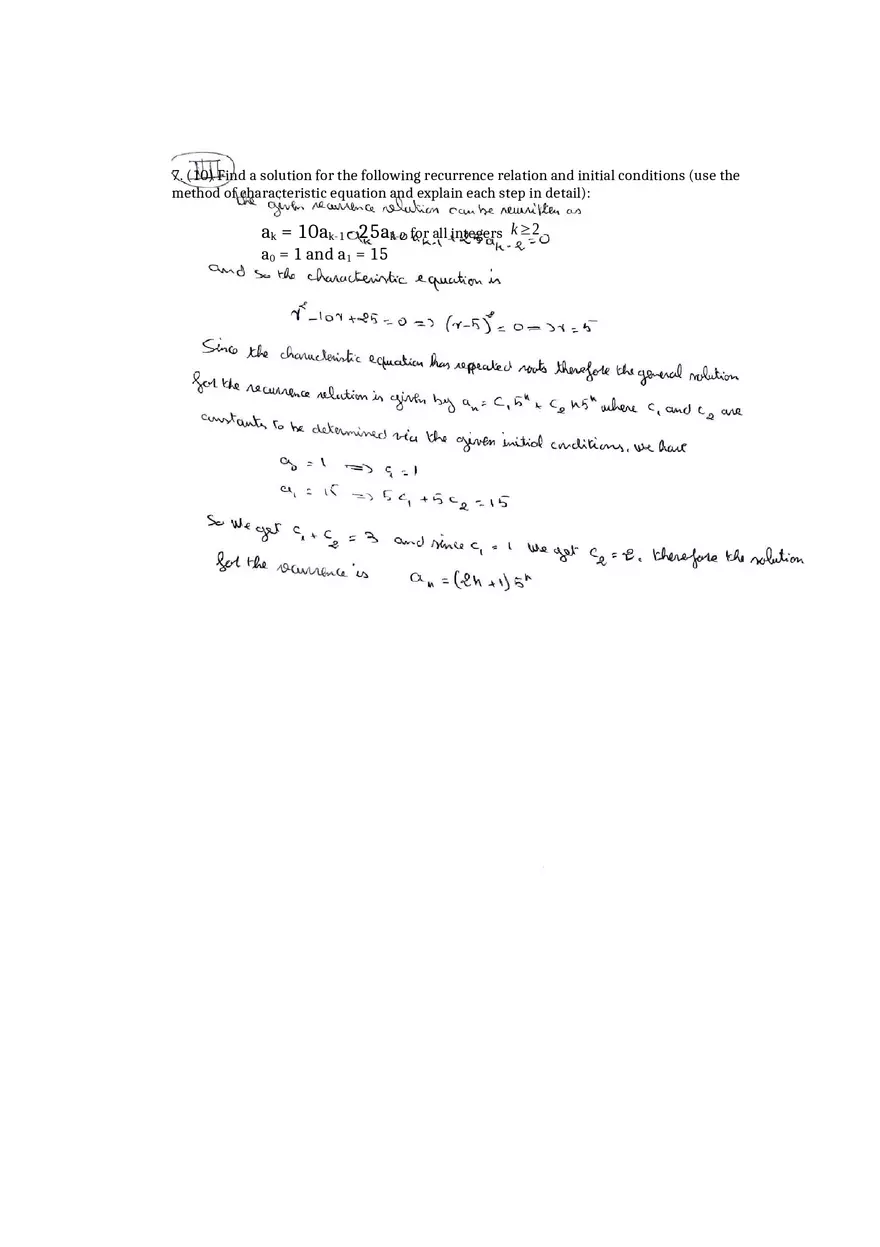 7. (10) Find a solution for the following recurrence relation and initial conditions (use the
method of characteristic equation and explain each step in detail):
the given recurrence relation can be rewritten as
aₖ = 10aₖ₋₁ - 25aₖ₋₂ for all integers k≥2
a₀ = 1 and a₁ = 15
and so the characteristic equation is
r² - 10r + 25 = 0 => (r-5)² = 0 => r = 5
Since the characteristic equation has repeated roots therefore the general solution
for the recurrence relation is given by aₙ = C₁5ⁿ + C₂ n5ⁿ where c₁ and c₂ are
constants to be determined via the given initial conditions, we have
a₀ = 1 => c₁ = 1
a₁ = 15 => 5c₁ + 5c₂ = 15
So we get c₁ + c₂ = 3 and since c₁ = 1 we get c₂ = 2. therefore the solution
for the recurrence is aₙ = (2n+1)5ⁿ